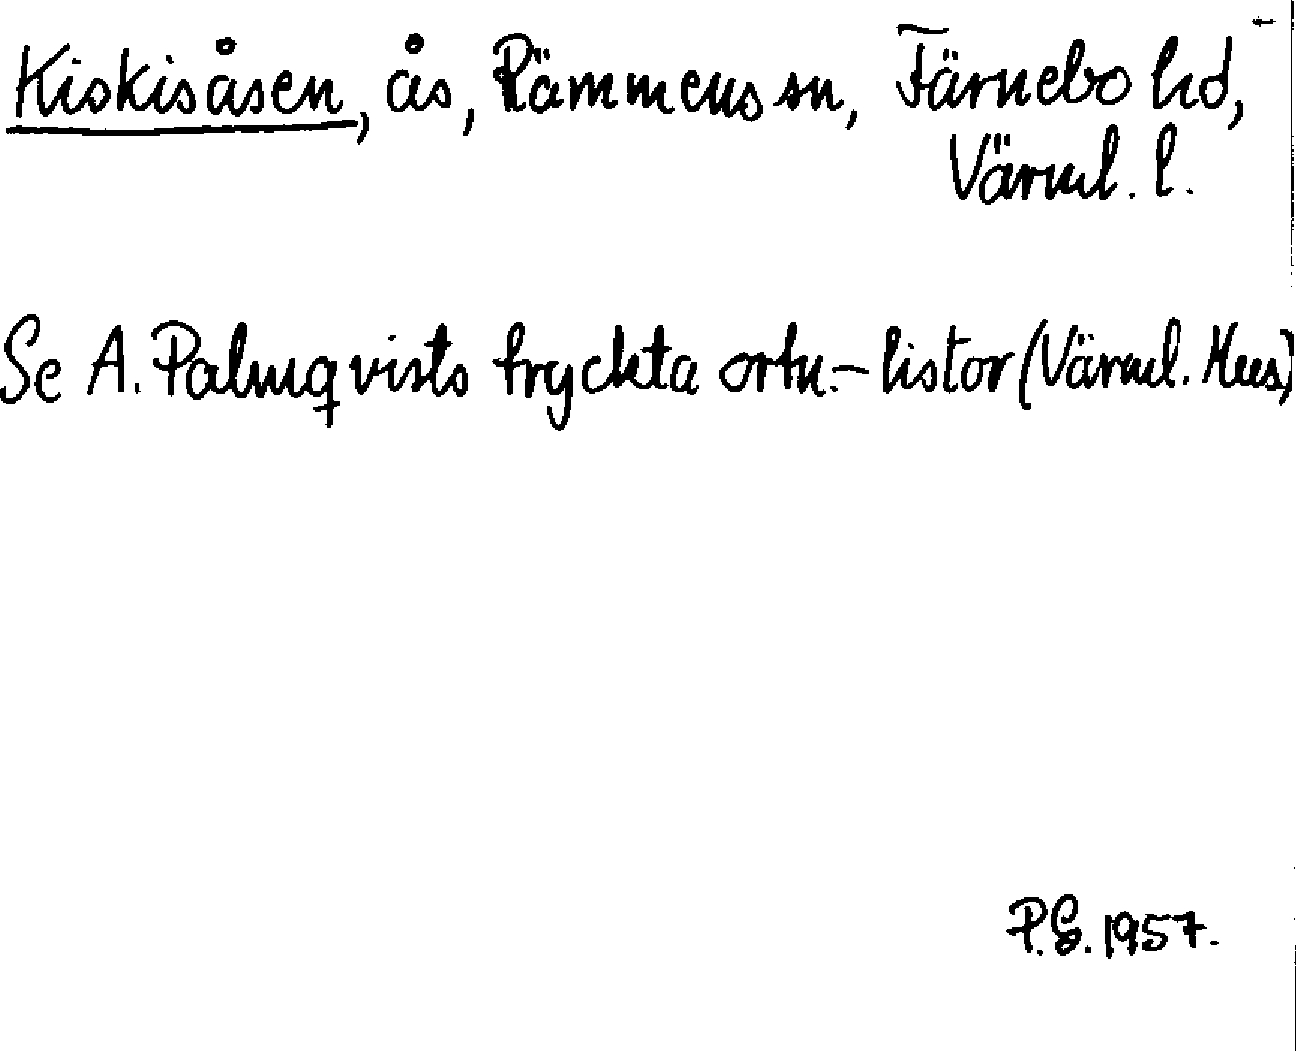 Kiskisåsen, ås, Rämmens sn, Färnebo hd,
Värml. l.
Se A. Palmqvists tryckta ortn.-listor (Värml. Mus)
P.G. 1957.